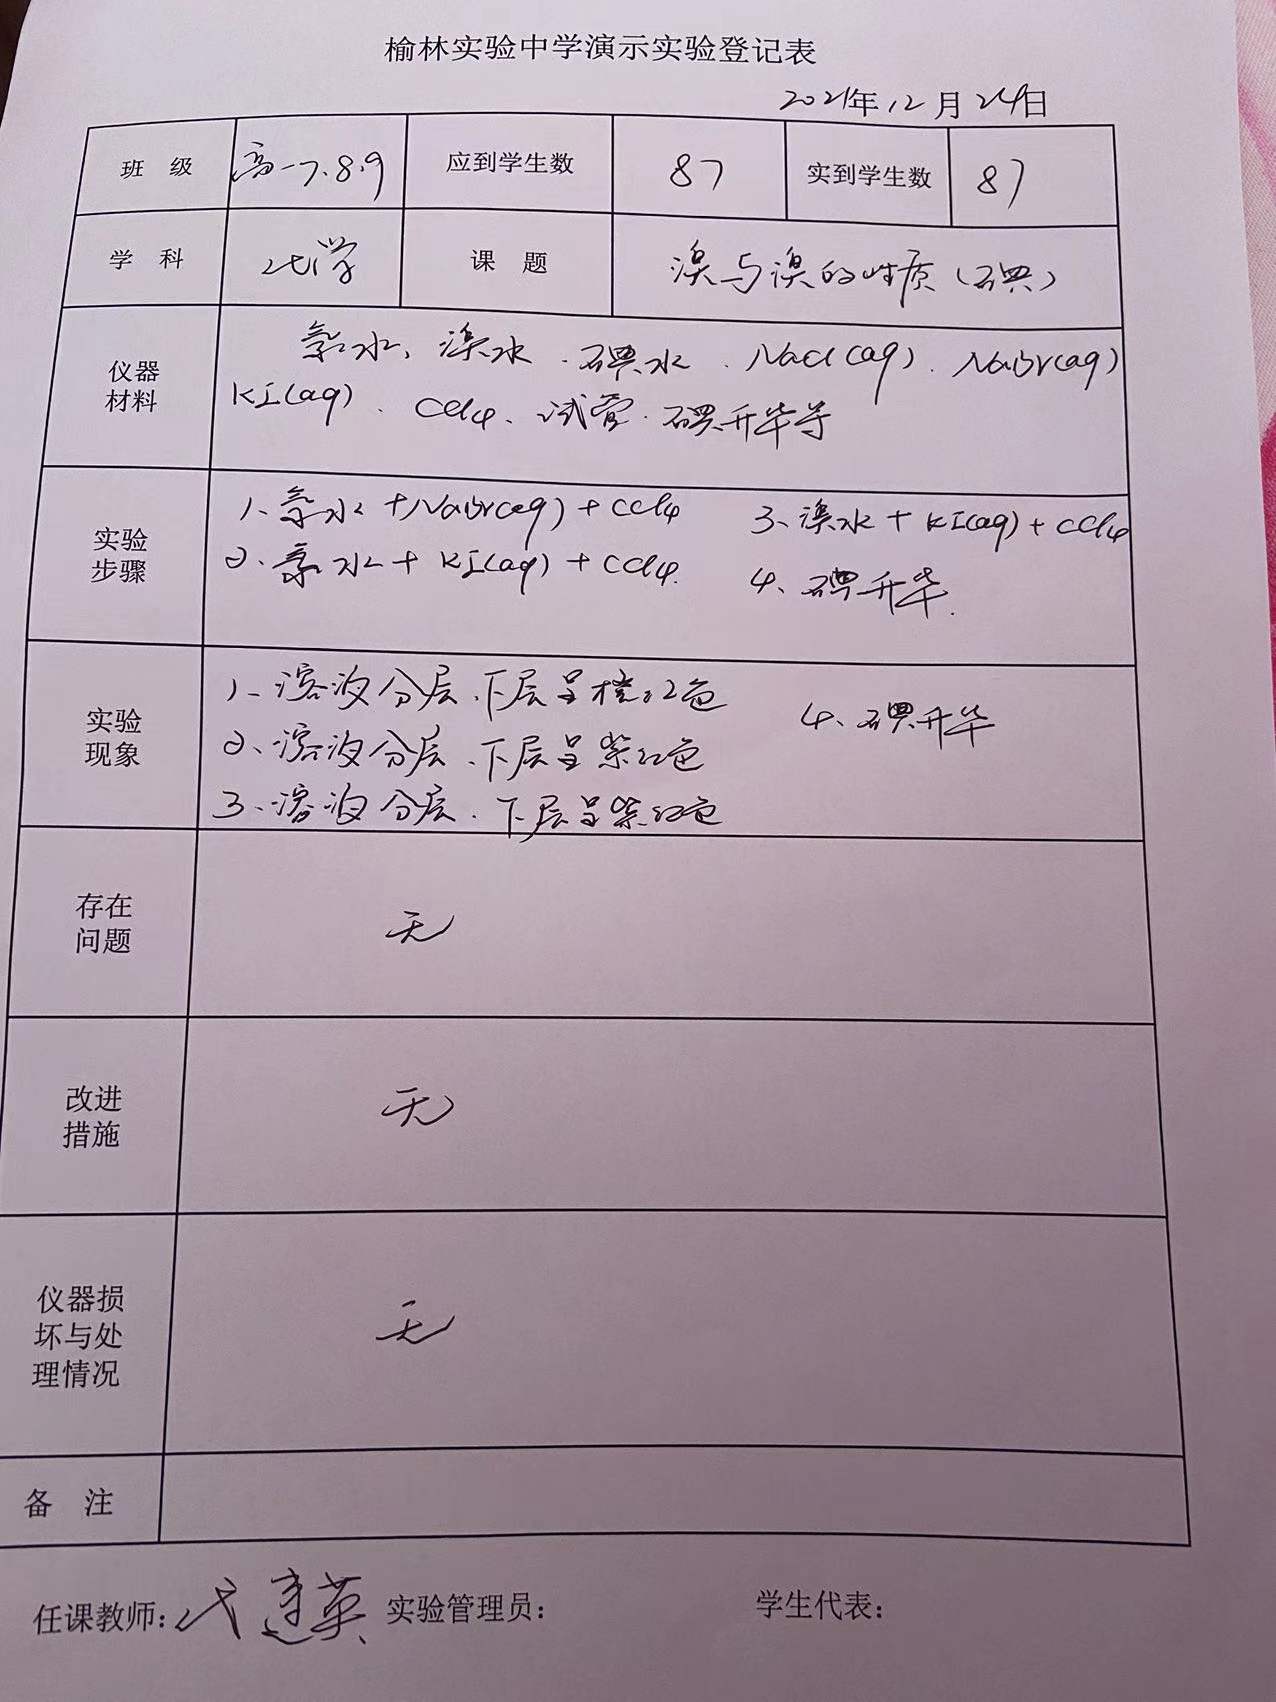 榆林实验中学演示实验登记表
2021年12月24日
班 级 高一7.8.9 应到学生数 87 实到学生数 87
学 科 化学 课 题 溴与溴的性质(碘)
仪器
材料
氯水、溴水.碘水.NaCl(aq).NaBr(aq)
KI(aq).CCl4、试管.碘升华等
实验
步骤
1、氯水+NaBr(aq)+CCl4 3、溴水+KI(aq)+CCl4
2.氯水+KI(aq)+CCl4. 4、碘升华.
实验
现象
1、溶液分层.下层呈橙红色 4、碘升华
2、溶液分层.下层呈紫红色
3、溶液分层.下层呈紫红色
存在
问题
无
改进
措施
无
仪器损
坏与处
理情况
无
备 注
任课教师:代建英 实验管理员: 学生代表: